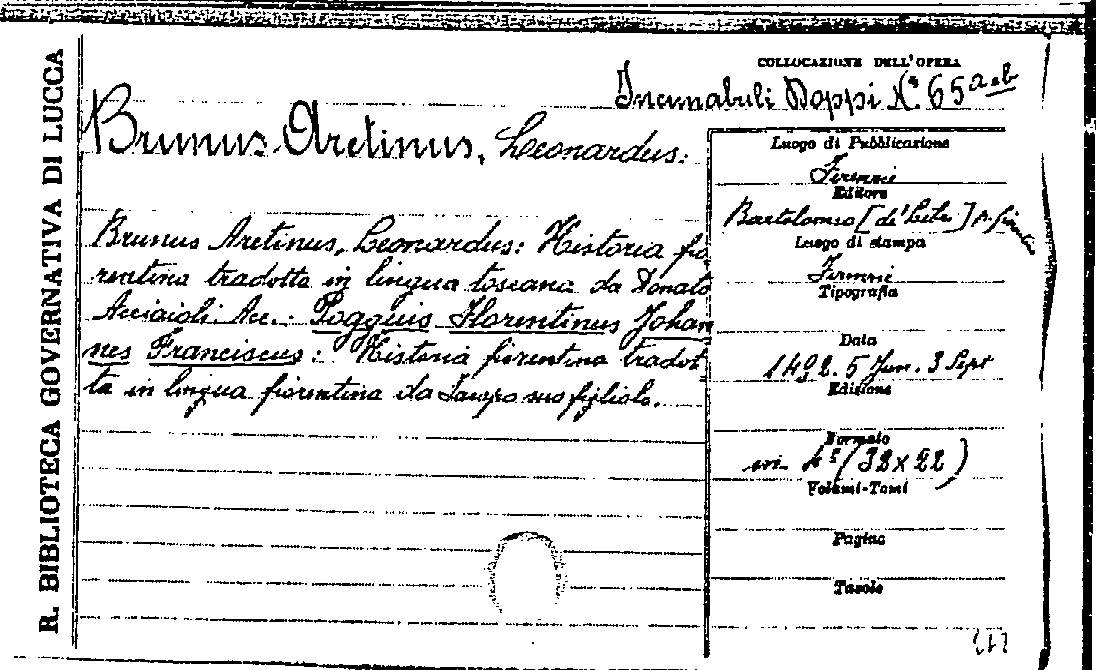 R. BIBLIOTECA GOVERNATIVA DI LUCCA
COLLOCAZIONE DELL'OPERA
Incunabuli Doppi N.° 65 a-b
Brunus Aretinus, Leonardus:
Brunus Aretinus, Leonardus: Historia fio-
rentina tradotta in lingua toscana da Donato
Acciaioli. Acc.: Poggius Florentinus Johan
nes Franciscus: Historia fiorentina tradot-
ta in lingua fiorentina da Jacopo suo figliolo.
Luogo di Pubblicazione
Firenze
Editore
Bartolomeo [di Libri] p. fiorentino
Luogo di stampa
Firenze
Tipografia
Data
1492. 5 Jun. 3 Sept
Edizione
Formato
in 4° (32x22)
Volumi-Tomi
Pagine
Tavole